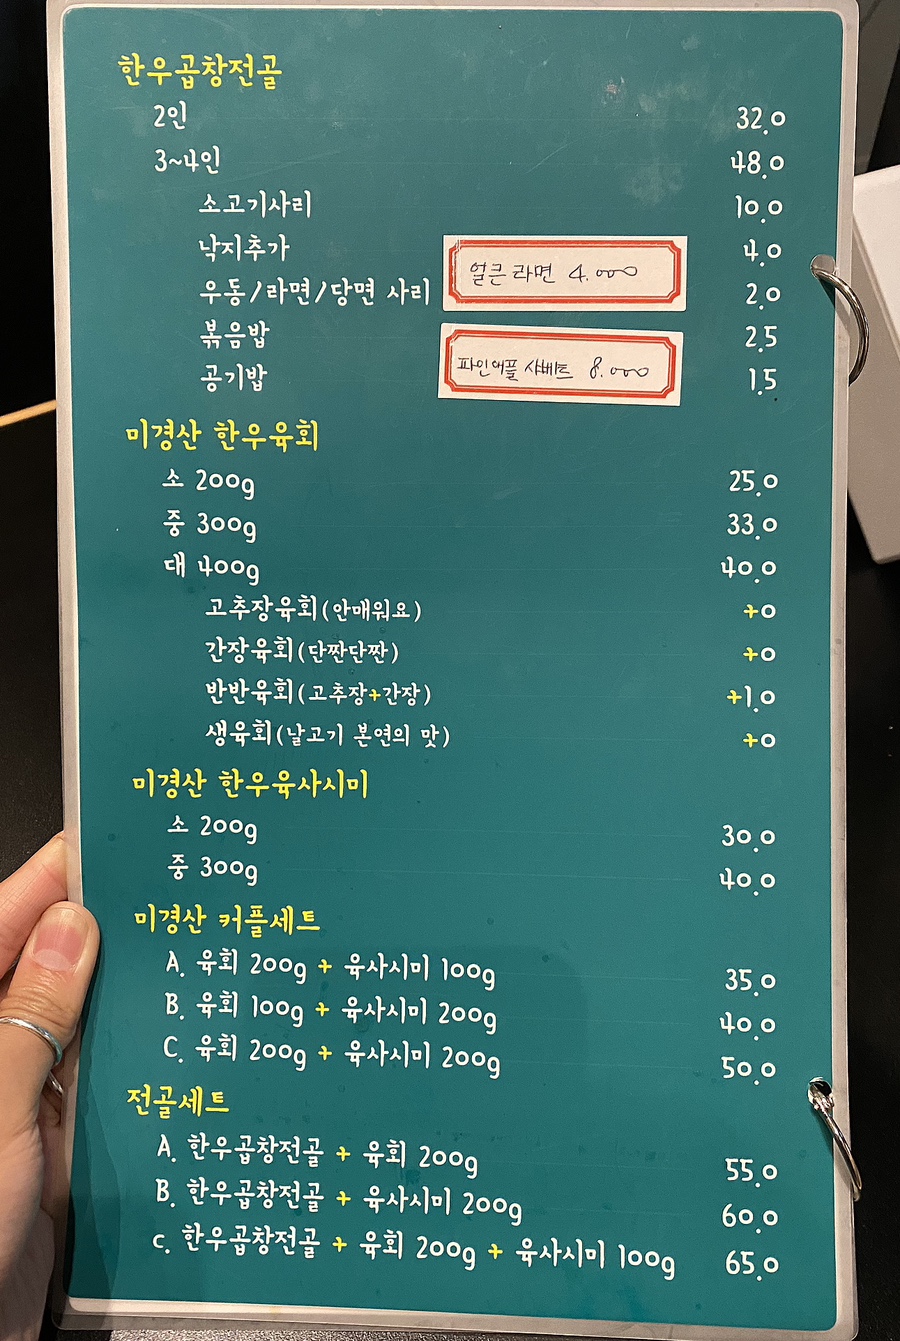 한우곱창전골
2인 32.0
3~4인 48.0
소고기사리 10.0
낙지추가 4.0
얼큰 라면 4.000
우동/라면/당면 사리 2.0
볶음밥 2.5
파인애플 샤베트 8.000
공기밥 1.5
미경산 한우육회
소 200g 25.0
중 300g 33.0
대 400g 40.0
고추장육회(안매워요) +0
간장육회(단짠단짠) +0
반반육회(고추장+간장) +1.0
생육회(날고기 본연의 맛) +0
미경산 한우육사시미
소 200g 30.0
중 300g 40.0
미경산 커플세트
A. 육회 200g + 육사시미 100g 35.0
B. 육회 100g + 육사시미 200g 40.0
C. 육회 200g + 육사시미 200g 50.0
전골세트
A. 한우곱창전골 + 육회 200g 55.0
B. 한우곱창전골 + 육사시미 200g 60.0
c. 한우곱창전골 + 육회 200g + 육사시미 100g 65.0